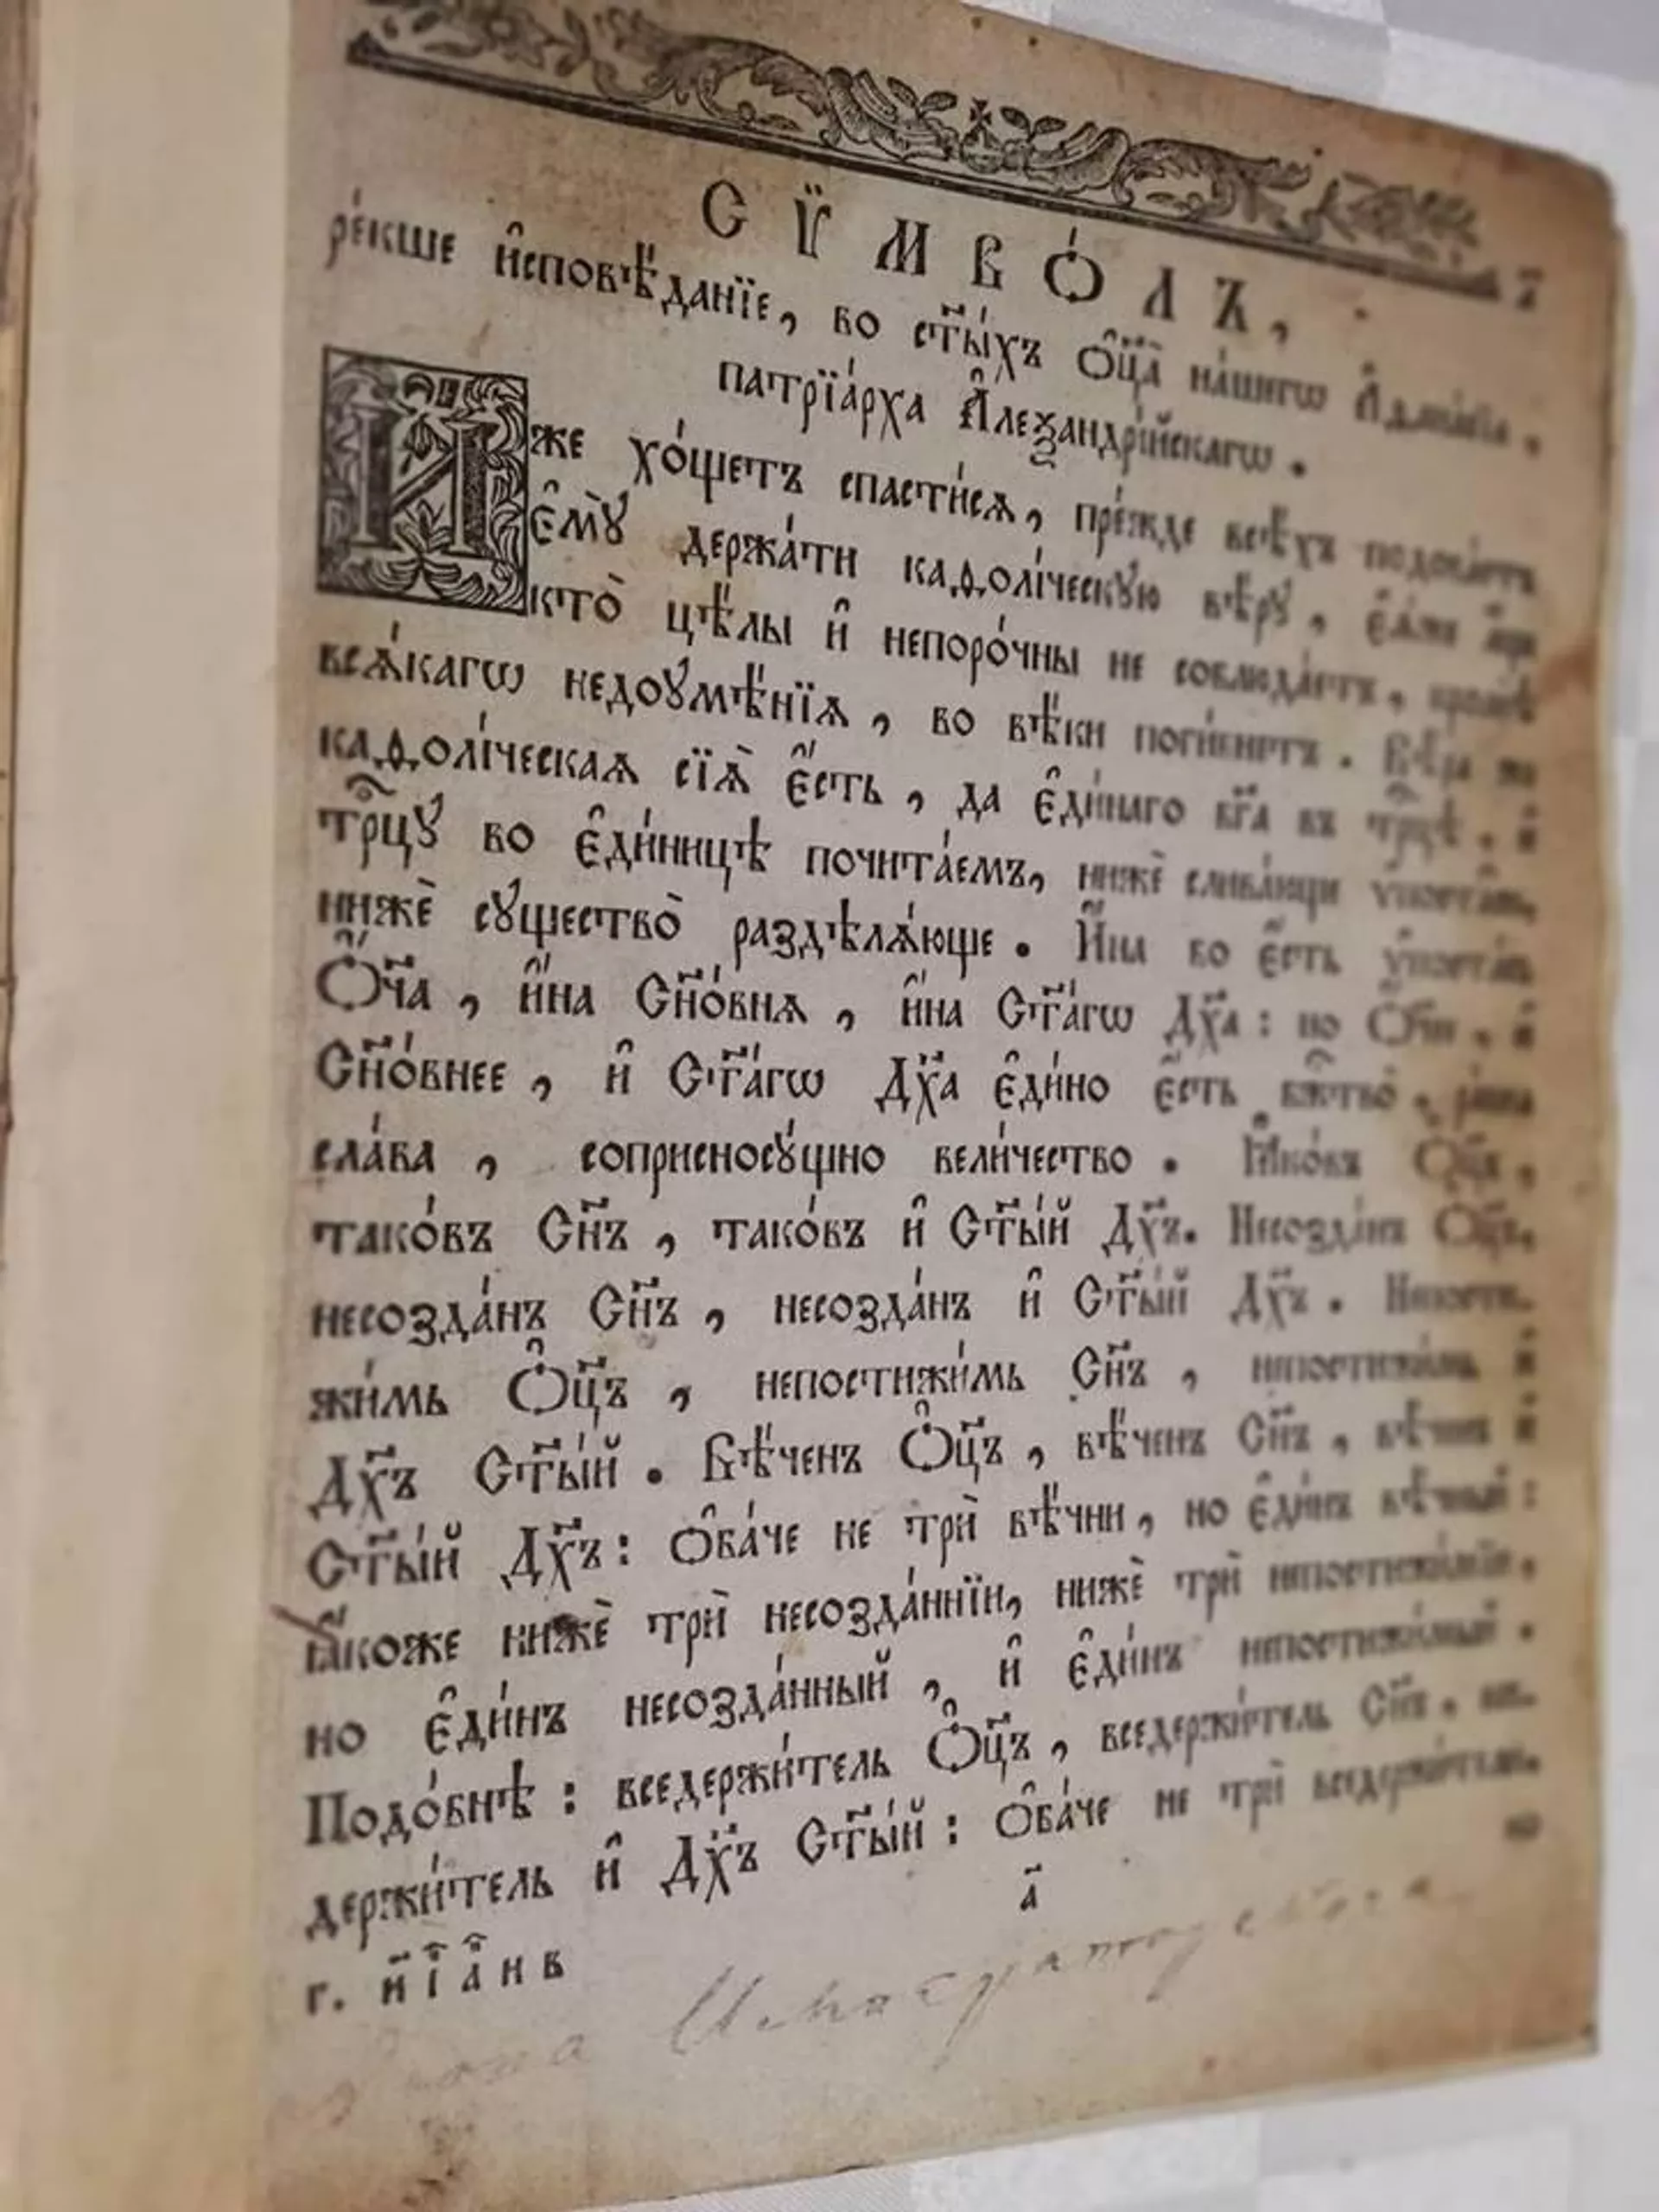 СѴ́МВО́ЛЪ,
ре́кше и҆сповѣ́данїе, во ст҃ы́хъ Ѻ҆ц҃а̀ на́шегѡ А҆ѳана́сїа,
патрїа́рха А҆леѯандрі́йскагѡ.
И́же хо́щетъ спасти́сѧ, пре́жде всѣ́хъ подоба́етъ
є҆мꙋ̀ держа́ти каѳолі́ческꙋю вѣ́рꙋ, є҆ѧ́же а҆́ще
кто̀ цѣ́лы и҆ непоро́чны не соблюда́етъ, кромѣ̀
всѧ́кагѡ недоꙋмѣ́нїѧ, во вѣ́ки поги́бнетъ. Вѣ́ра же
каѳолі́ческаѧ сїѧ̀ є҆́сть, да є҆ди́наго бг҃а въ трⷪ҇цѣ, и҆
трⷪ҇цꙋ во є҆ди́ницѣ почита́емъ, нижѐ слива́юще ѵ҆поста̑си,
нижѐ сꙋщество̀ раздѣлѧ́юще. И҆́на бо є҆́сть ѵ҆поста́сь
Ѻ҆́ч҃а, и҆́на Сн҃о́внѧ, и҆́на Ст҃а́гѡ Дх҃а: но Ѻ҆́ч҃ее, и҆
Сн҃о́внее, и҆ Ст҃а́гѡ Дх҃а є҆ди́но є҆́сть бж҃тво̀, ра́вна
сла́ва, соприсносꙋ́щно вели́чество. Ꙗ҆ко́въ Ѻ҆ц҃ъ,
тако́въ Сн҃ъ, тако́въ и҆ Ст҃ы́й Дх҃ъ. Несозда́нъ Ѻ҆ц҃ъ,
несозда́нъ Сн҃ъ, несозда́нъ и҆ Ст҃ы́й Дх҃ъ. Непости-
жи́мь Ѻ҆ц҃ъ, непостижи́мь Сн҃ъ, непостижи́мь и҆
Дх҃ъ Ст҃ы́й. Вѣ́ченъ Ѻ҆ц҃ъ, вѣ́ченъ Сн҃ъ, вѣ́ченъ и҆
Ст҃ы́й Дх҃ъ: Ѻ҆ба́че не трѝ вѣ́чни, но є҆ди́нъ вѣ́чный:
ꙗ҆́коже нижѐ трѝ несозда́ннїи, нижѐ трѝ непостижи́мїи,
но є҆ди́нъ несозда́нный, и҆ є҆ди́нъ непостижи́мый.
Подо́бнѣ: вседержи́тель Ѻ҆ц҃ъ, вседержи́тель Сн҃ъ, все-
держи́тель и҆ Дх҃ъ Ст҃ы́й: Ѻ҆ба́че не трѝ вседержи́тели,
а҃ но
г. и҆ і҆ а҆ н в